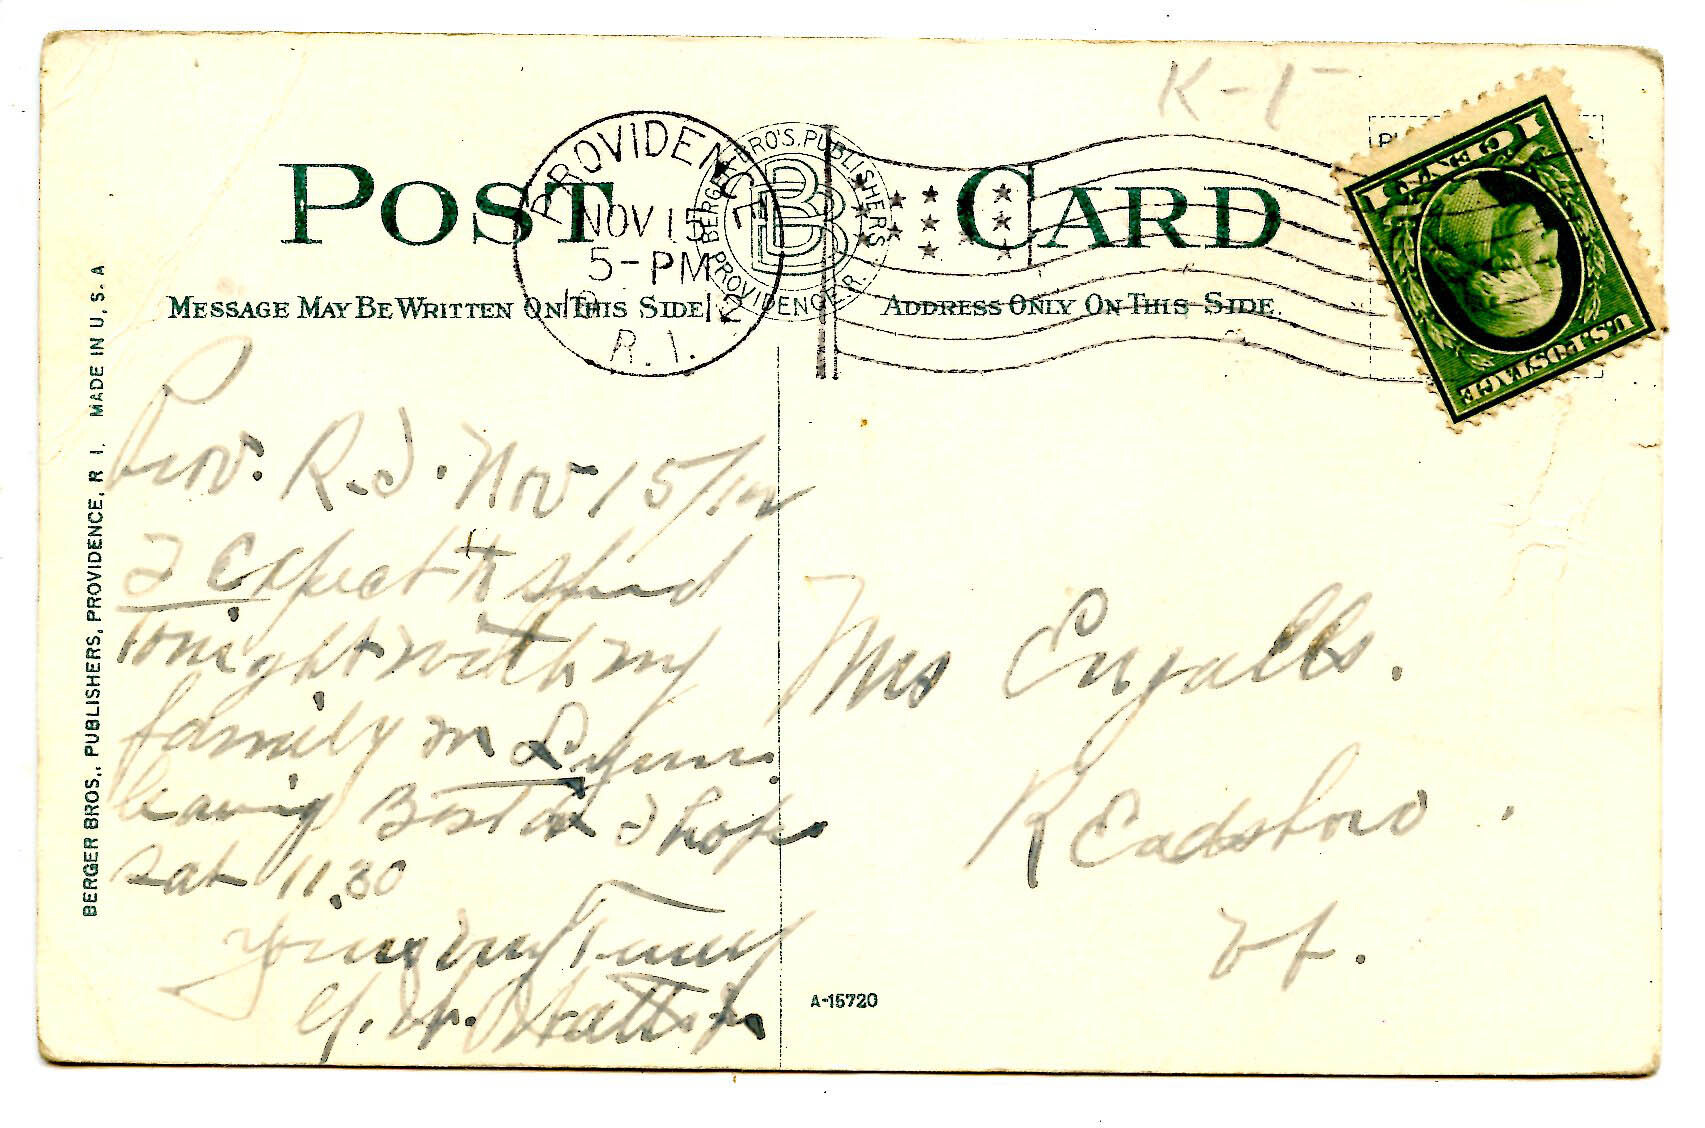 K-1
POST CARD
PROVIDENCE
NOV 15
5-PM
1912
R.I.
BERGER BRO'S. PUBLISHERS
BB
PROVIDENCE R.I.
1 CENT 1
U.S. POSTAGE
MESSAGE MAY BE WRITTEN ON THIS SIDE
ADDRESS ONLY ON THIS SIDE.
BERGER BROS., PUBLISHERS, PROVIDENCE, R I. MADE IN U.S.A
Prov. R.I. Nov 15/12
I expect to spend
tonight with my
family in Lynn.
leaving Boston I hope
Sat 11.30
Yours very Truly
Mrs Engalls.
Readsboro.
Vt.
A-15720